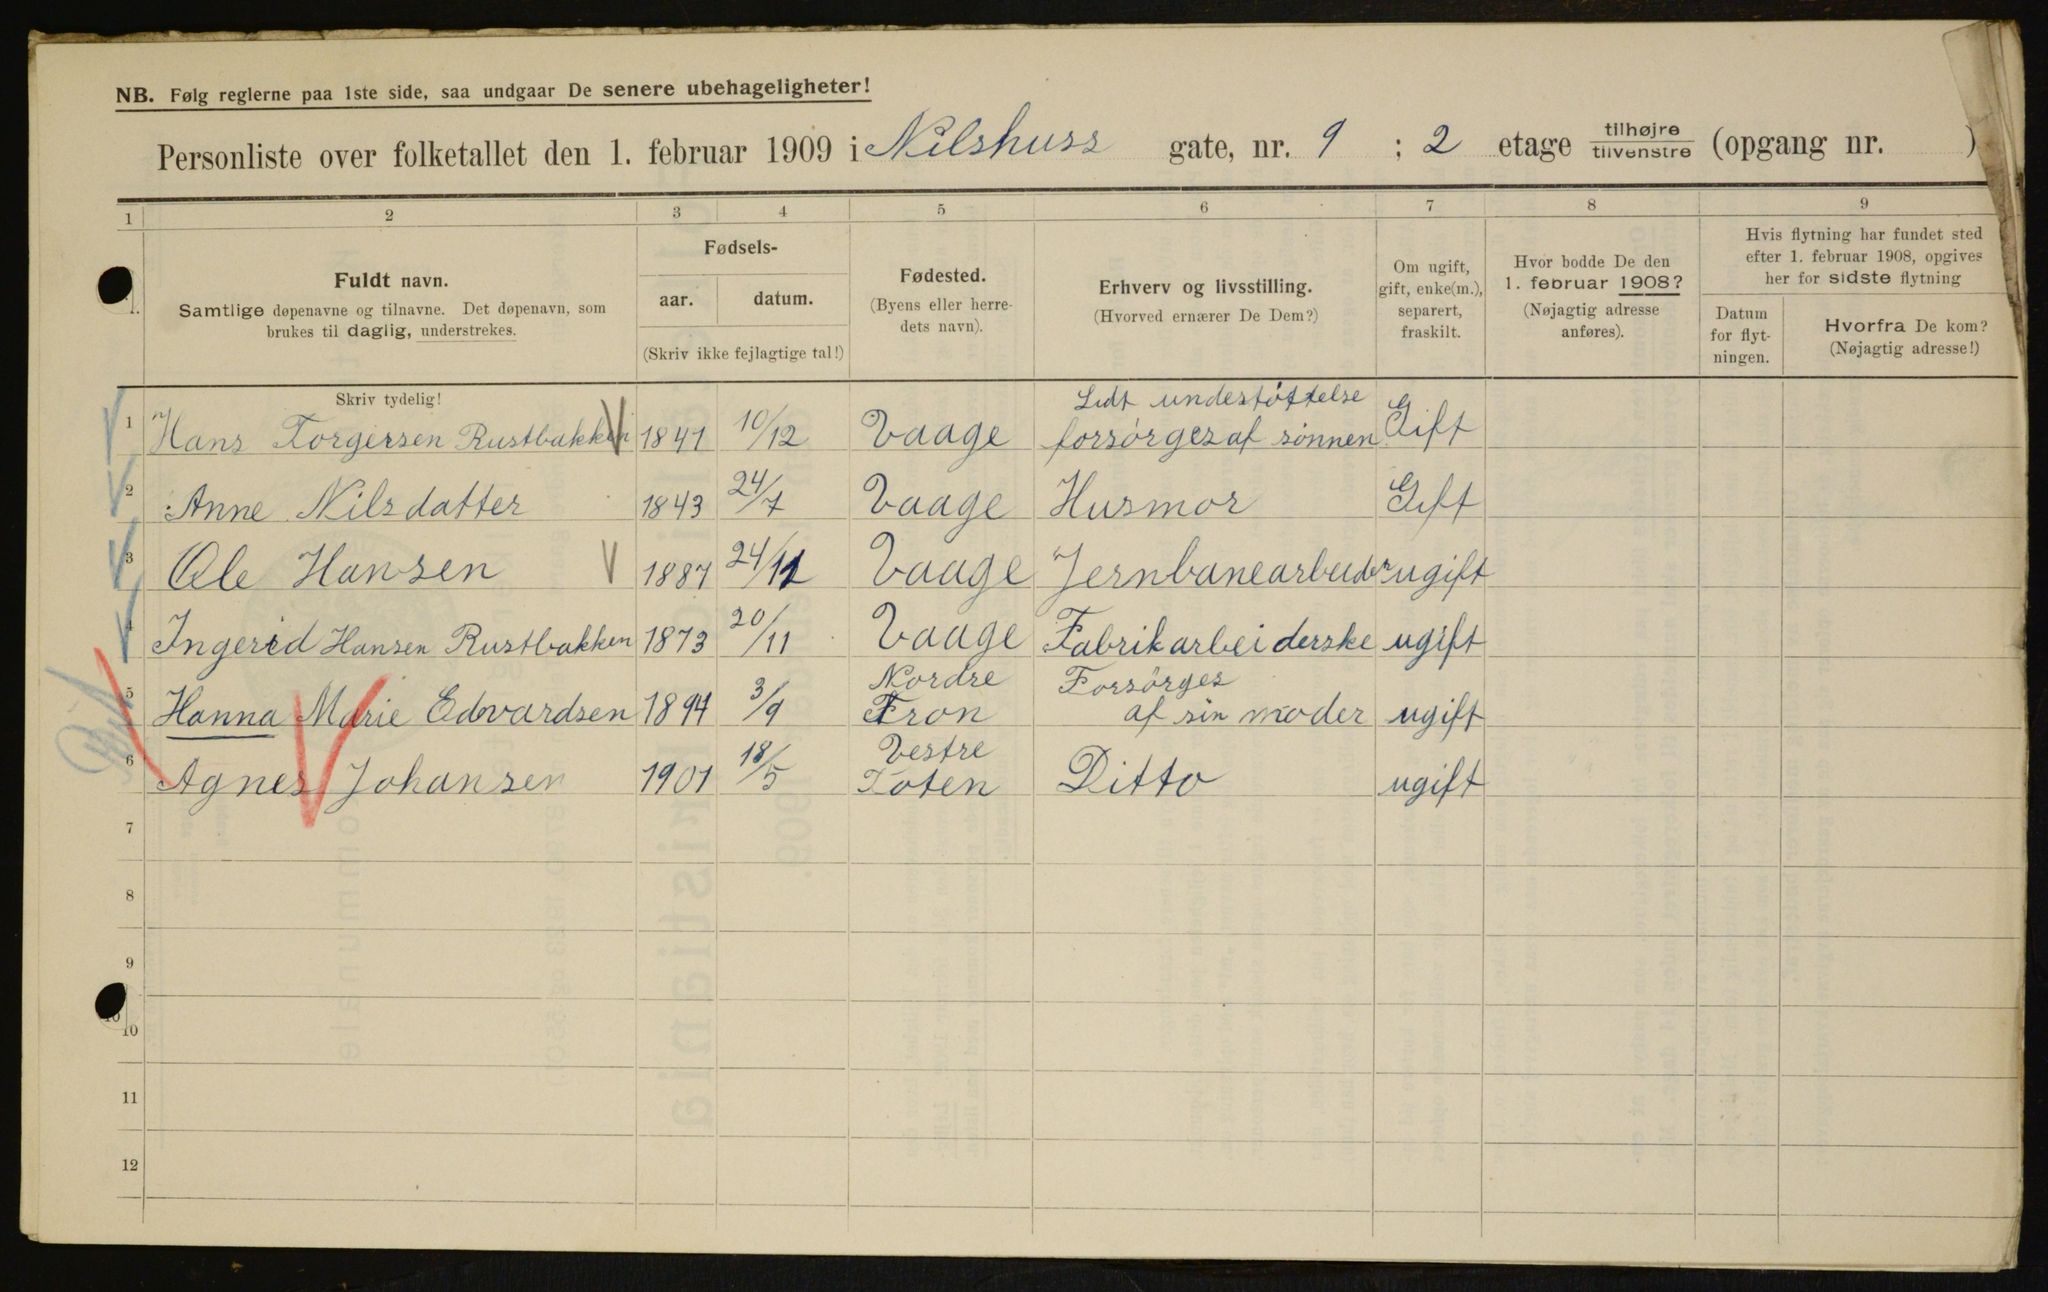 NB. Følg reglerne paa 1ste side, saa undgaar De senere ubehageligheter!
Personliste over folketallet den 1. februar 1909 i Nilshuss gate, nr. 9 ; 2 etage tilhøjre / tilvenstre (opgang nr. )
1 2 3 4 5 6 7 8 9
Fuldt navn.
Samtlige døpenavne og tilnavne. Det døpenavn, som
brukes til daglig, understrekes.
Fødsels-
aar. datum.
(Skriv ikke fejlagtige tal!)
Fødested.
(Byens eller herre-
dets navn).
Erhverv og livsstilling.
(Hvorved ernærer De Dem?)
Om ugift,
gift, enke(m.),
separert,
fraskilt.
Hvor bodde De den
1. februar 1908?
(Nøjagtig adresse
anføres).
Hvis flytning har fundet sted
efter 1. februar 1908, opgives
her for sidste flytning
Datum
for flyt-
ningen.
Hvorfra De kom?
(Nøjagtig adresse!)
Skriv tydelig!
Lidt undestøttelse
1 Hans Torgersen Rustbakken 1841 10/12 Vaage forsørges af sønnen Gift
2 Anne Nilsdatter 1843 24/7 Vaage Husmor Gift
3 Ole Hansen 1887 24/11 Vaage Jernbanearbeider ugift
4 Ingerid Hansen Rustbakken 1873 20/11 Vaage Fabrikarbeiderske ugift
Nordre Forsørges
5 Hanna Marie Edvardsen 1894 3/9 Fron af sin moder ugift
Vestre
6 Agnes Johansen 1901 18/5 Toten Ditto ugift
7
8
9
10
11
12